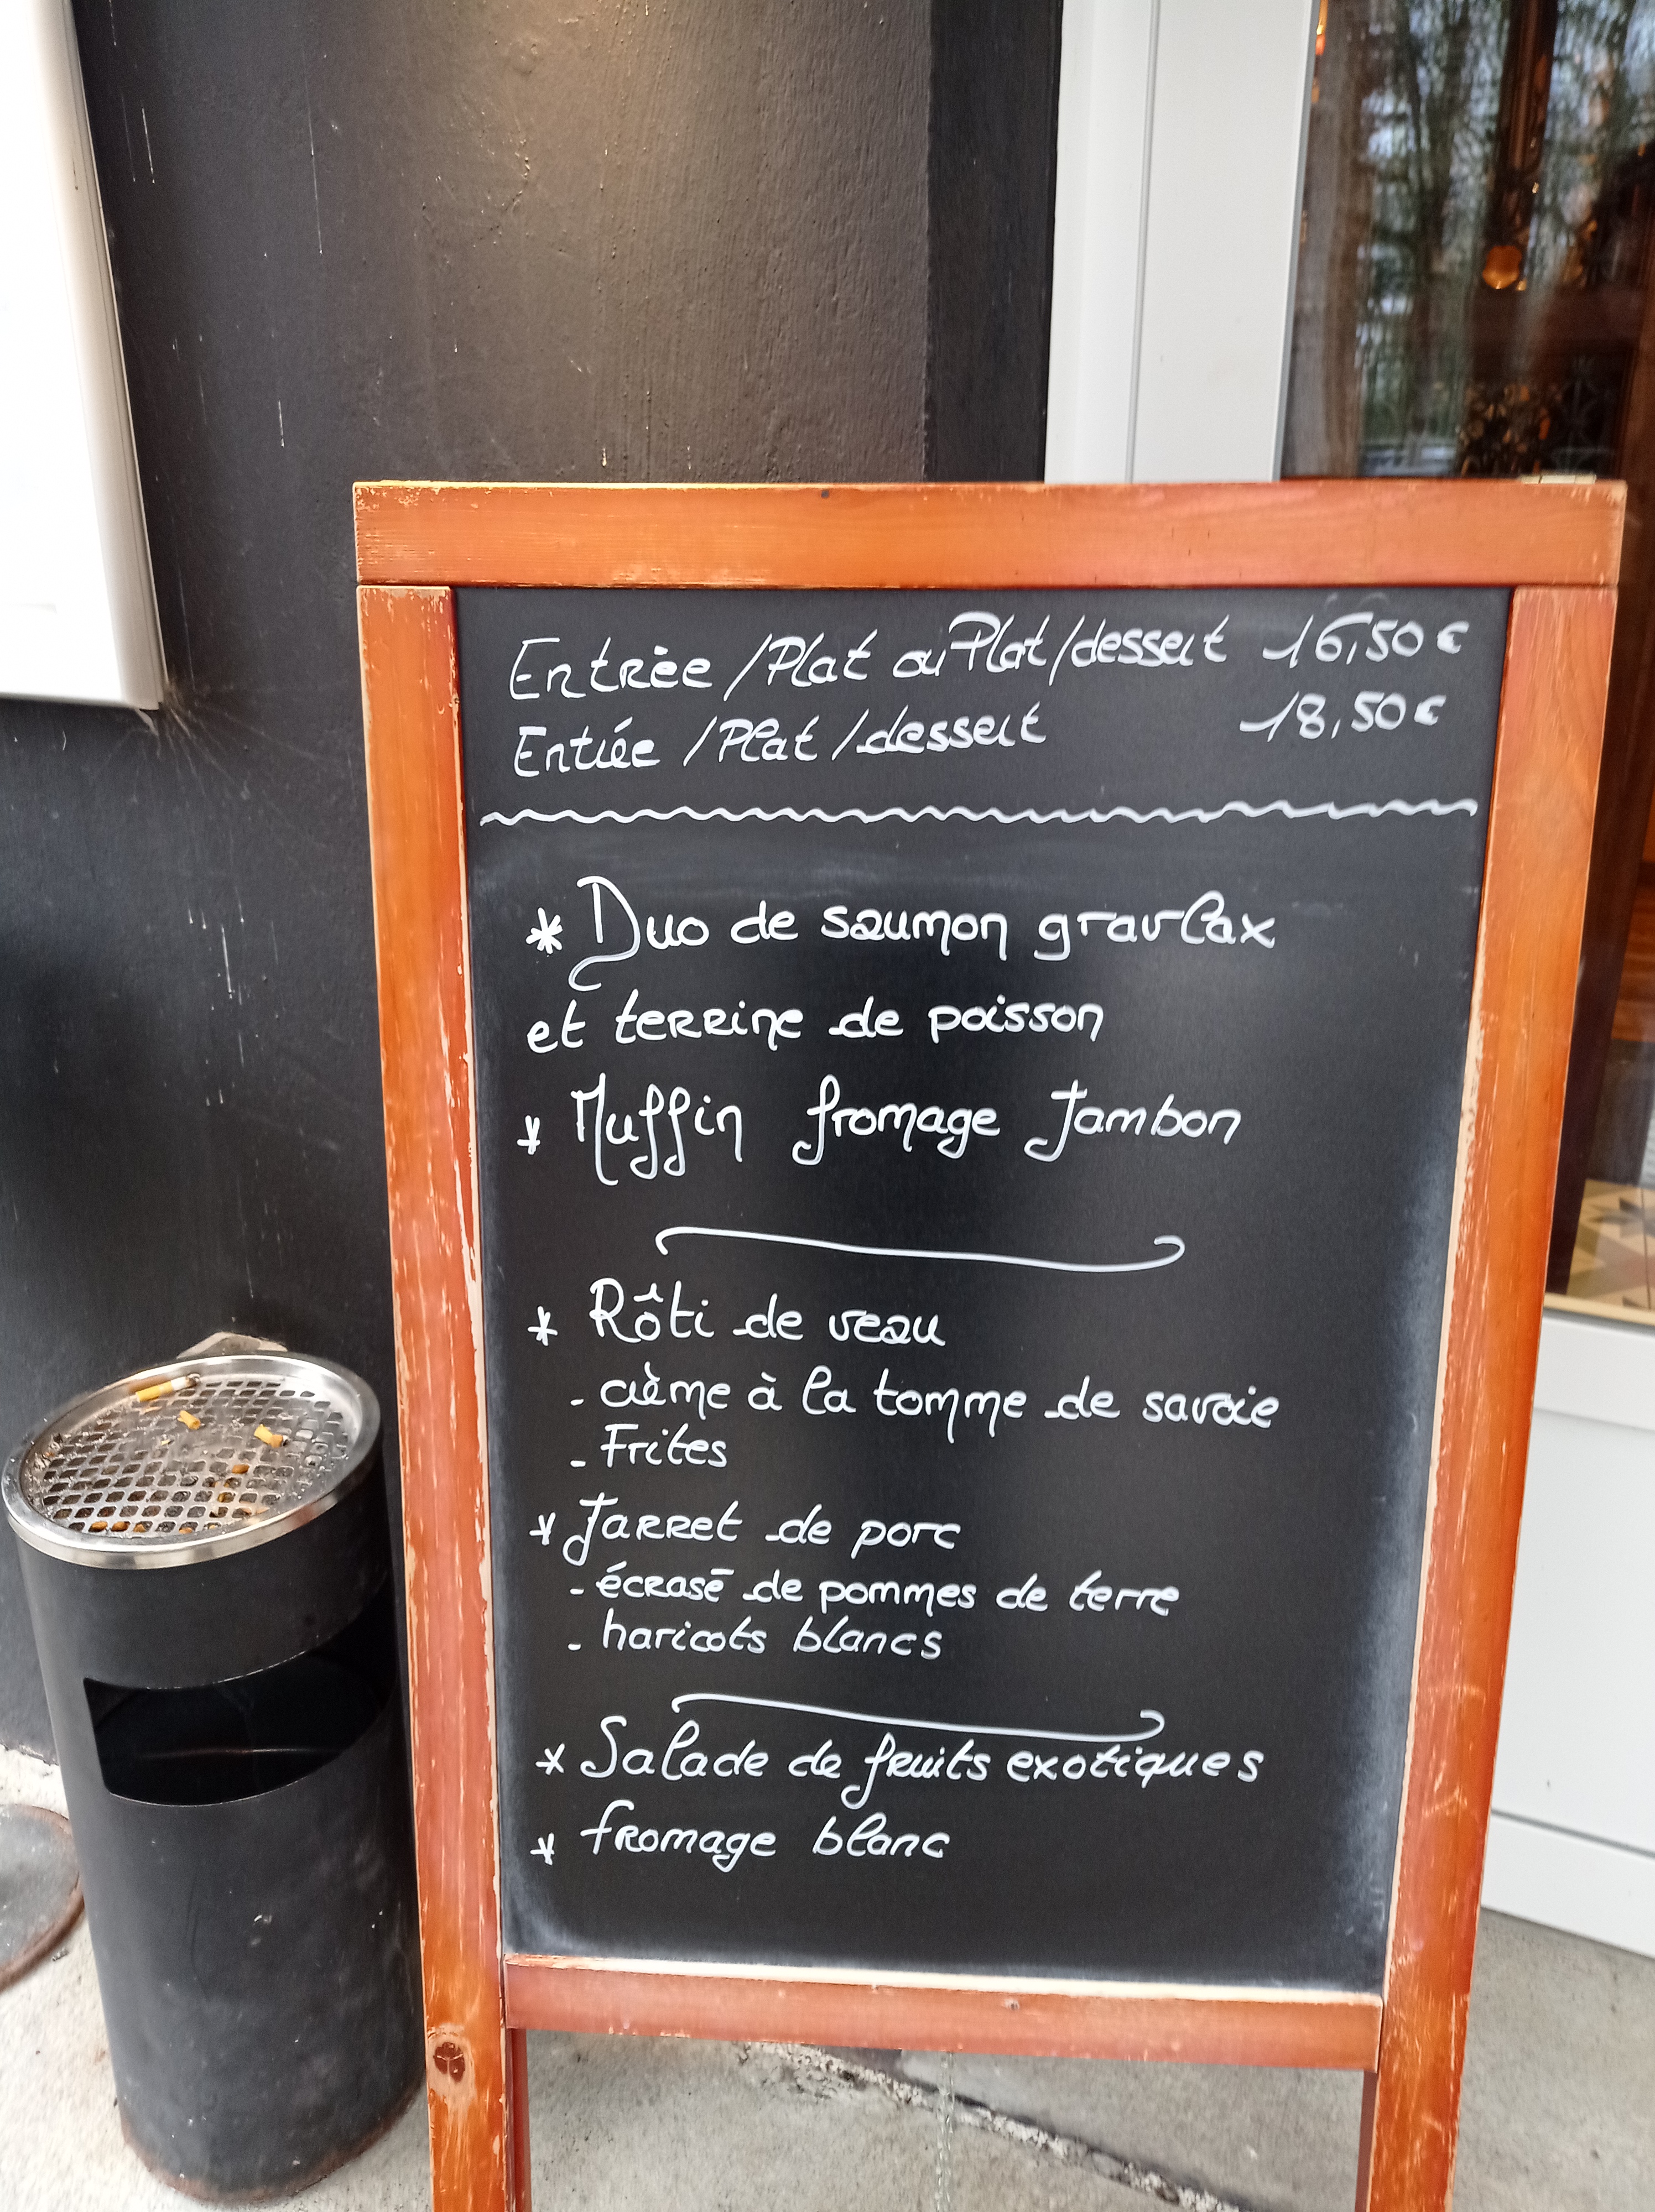 Entrée / Plat ou Plat / dessert 16,50 €
Entrée / Plat / dessert 18,50 €
* Duo de saumon gravlax
et terrine de poisson
* Muffin fromage Jambon
* Rôti de veau
- crème à la tomme de savoie
- Frites
* Jarret de porc
- écrasé de pommes de terre
- haricots blancs
* Salade de fruits exotiques
* fromage blanc